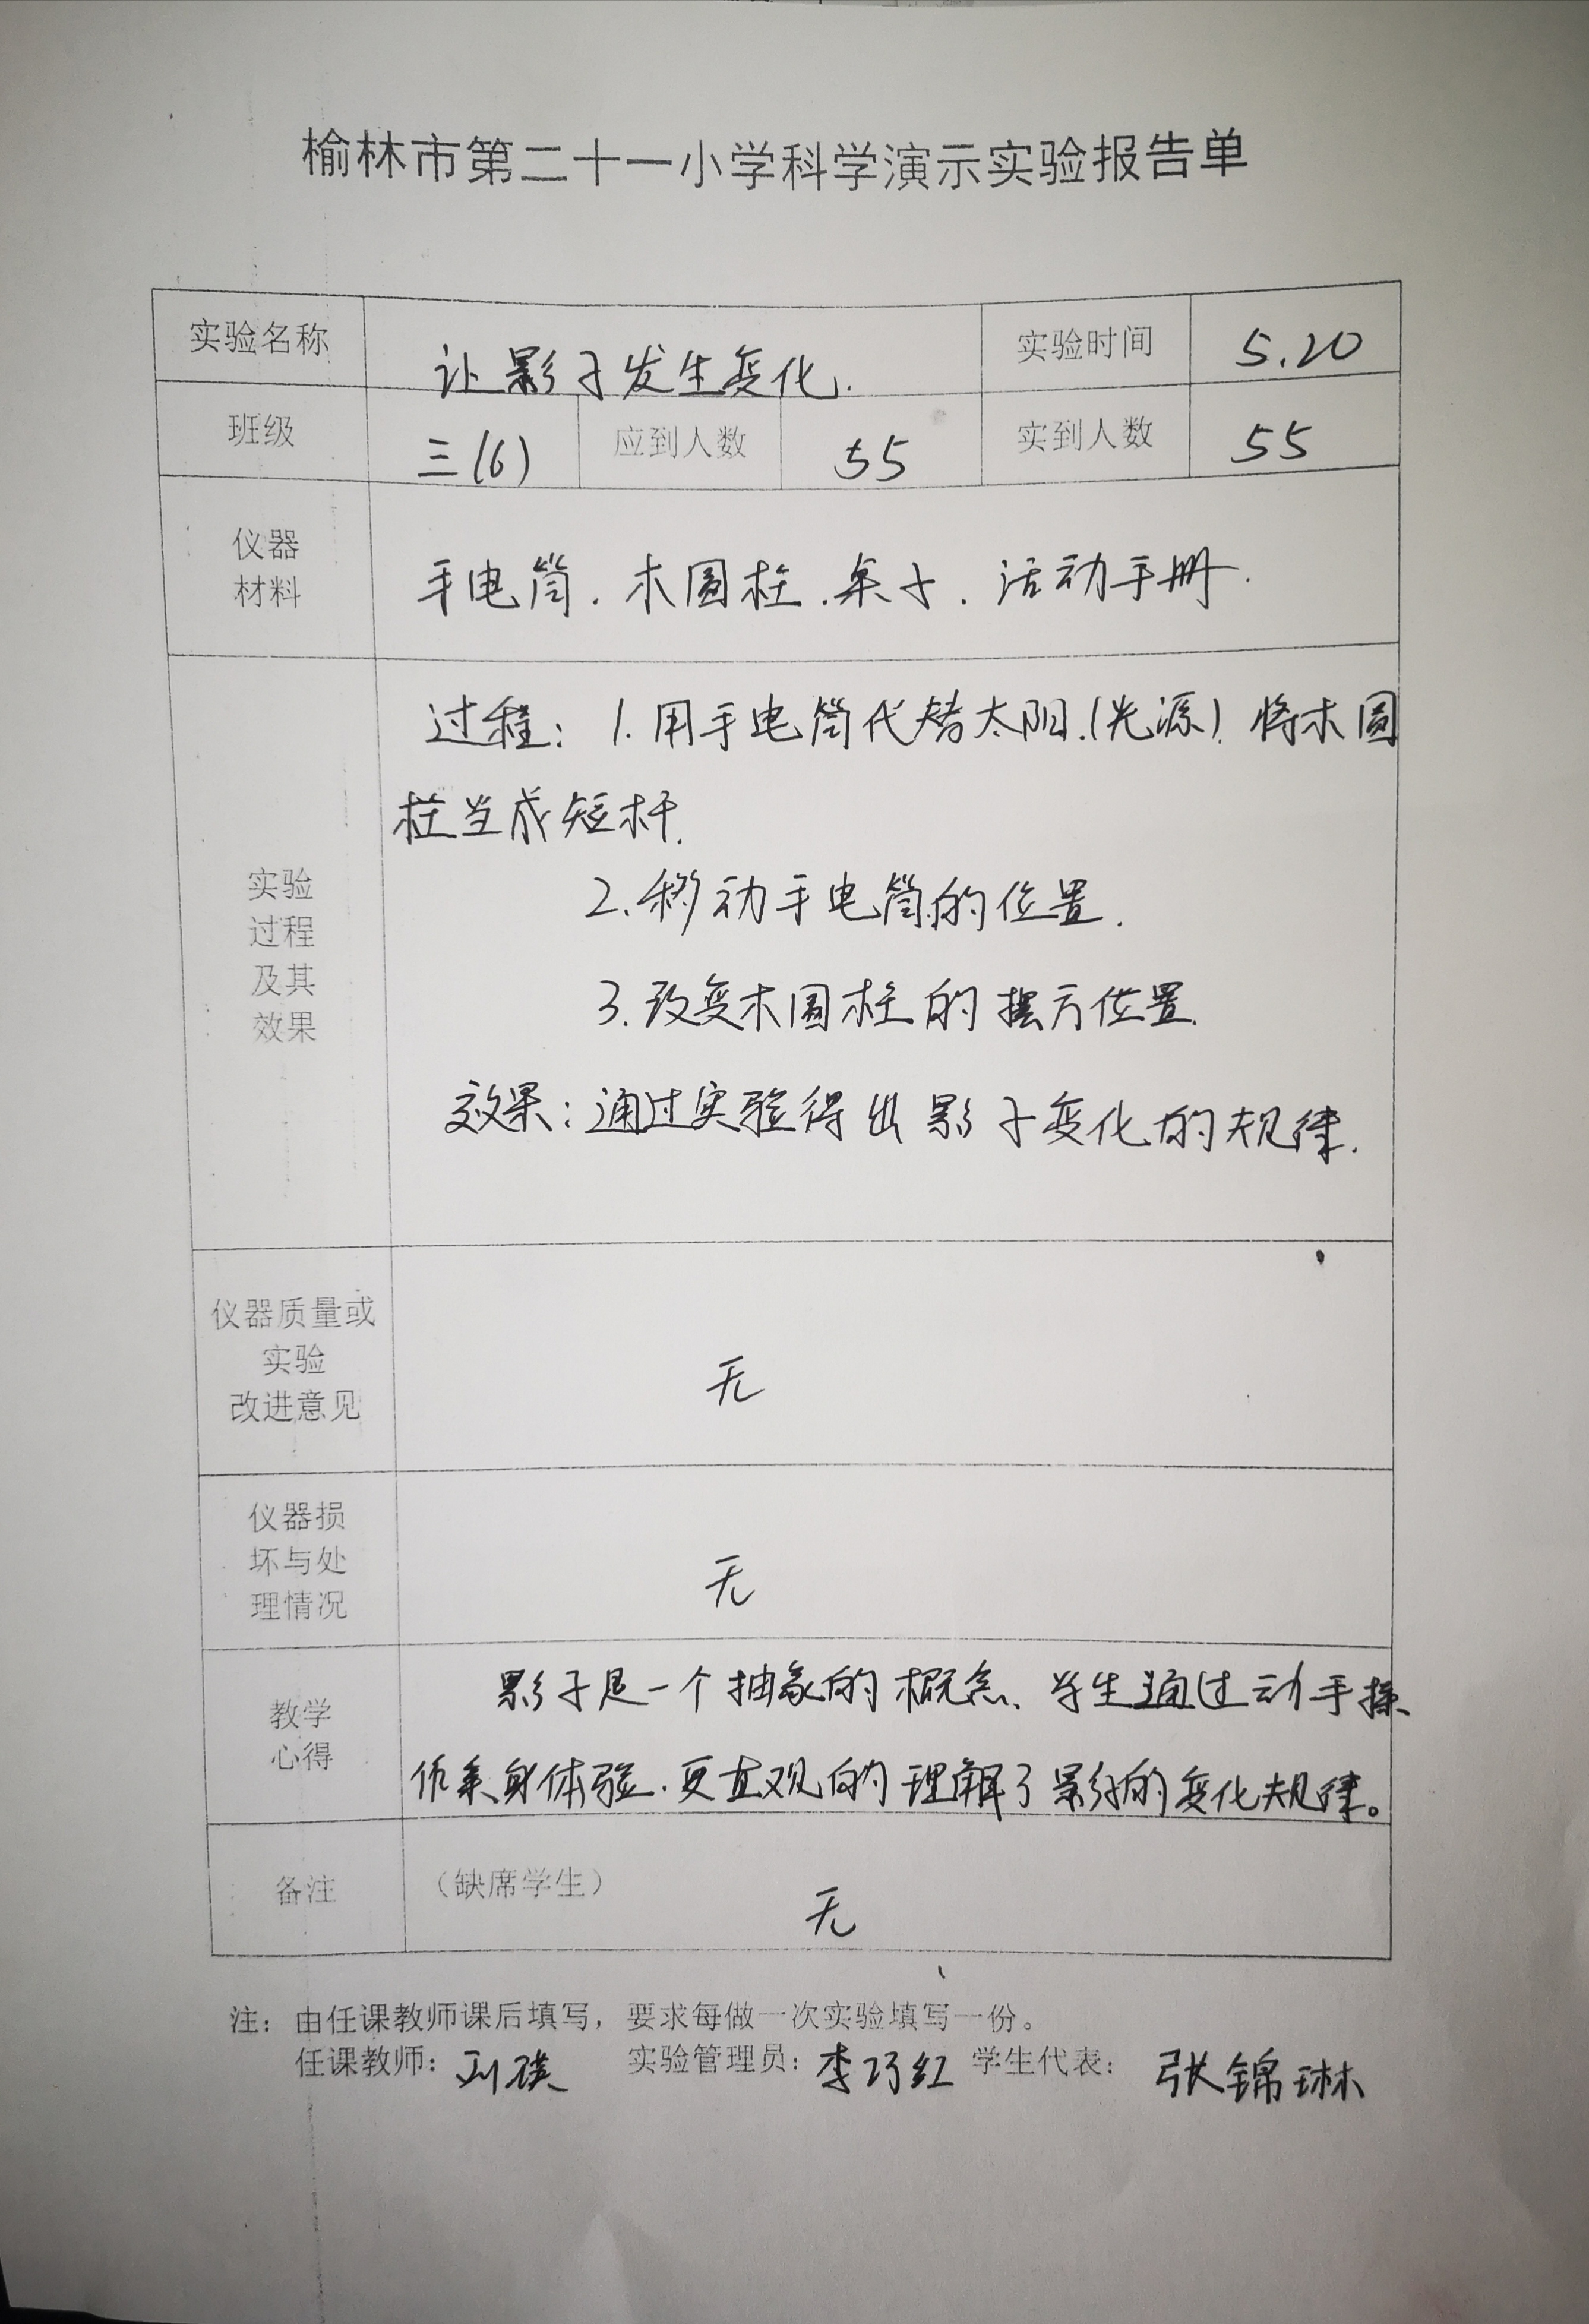 榆林市第二十一小学科学演示实验报告单
实验名称 让影子发生变化. 实验时间 5.20
班级 三(6) 应到人数 55 实到人数 55
仪器
材料
手电筒.木圆柱.桌子.活动手册.
实验
过程
及其
效果
过程：1.用手电筒代替太阳.(光源).将木圆
柱当成短杆.
2.移动手电筒的位置.
3.改变木圆柱的摆方位置.
效果：通过实验得出影子变化的规律.
仪器质量或
实验
改进意见
无
仪器损
坏与处
理情况
无
教学
心得
影子是一个抽象的概念、学生通过动手操
作亲身体验.更直观的理解了影子的变化规律。
备注 （缺席学生） 无
注：由任课教师课后填写，要求每做一次实验填写一份。
任课教师：刘 实验管理员：李巧红 学生代表：张锦琳